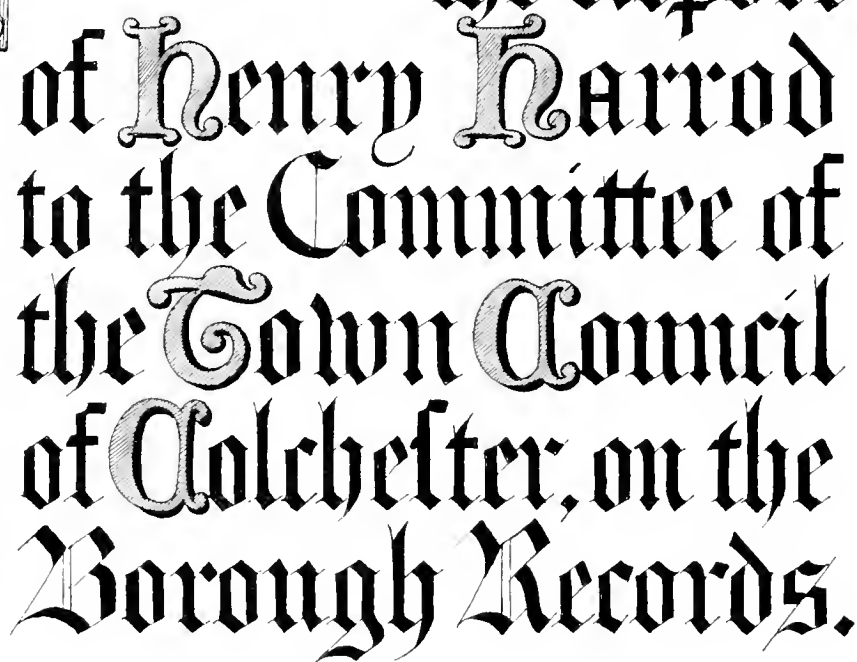 of Henry Harrod
to the Committee of
the Town Council
of Colcheſter, on the
Borough Records.